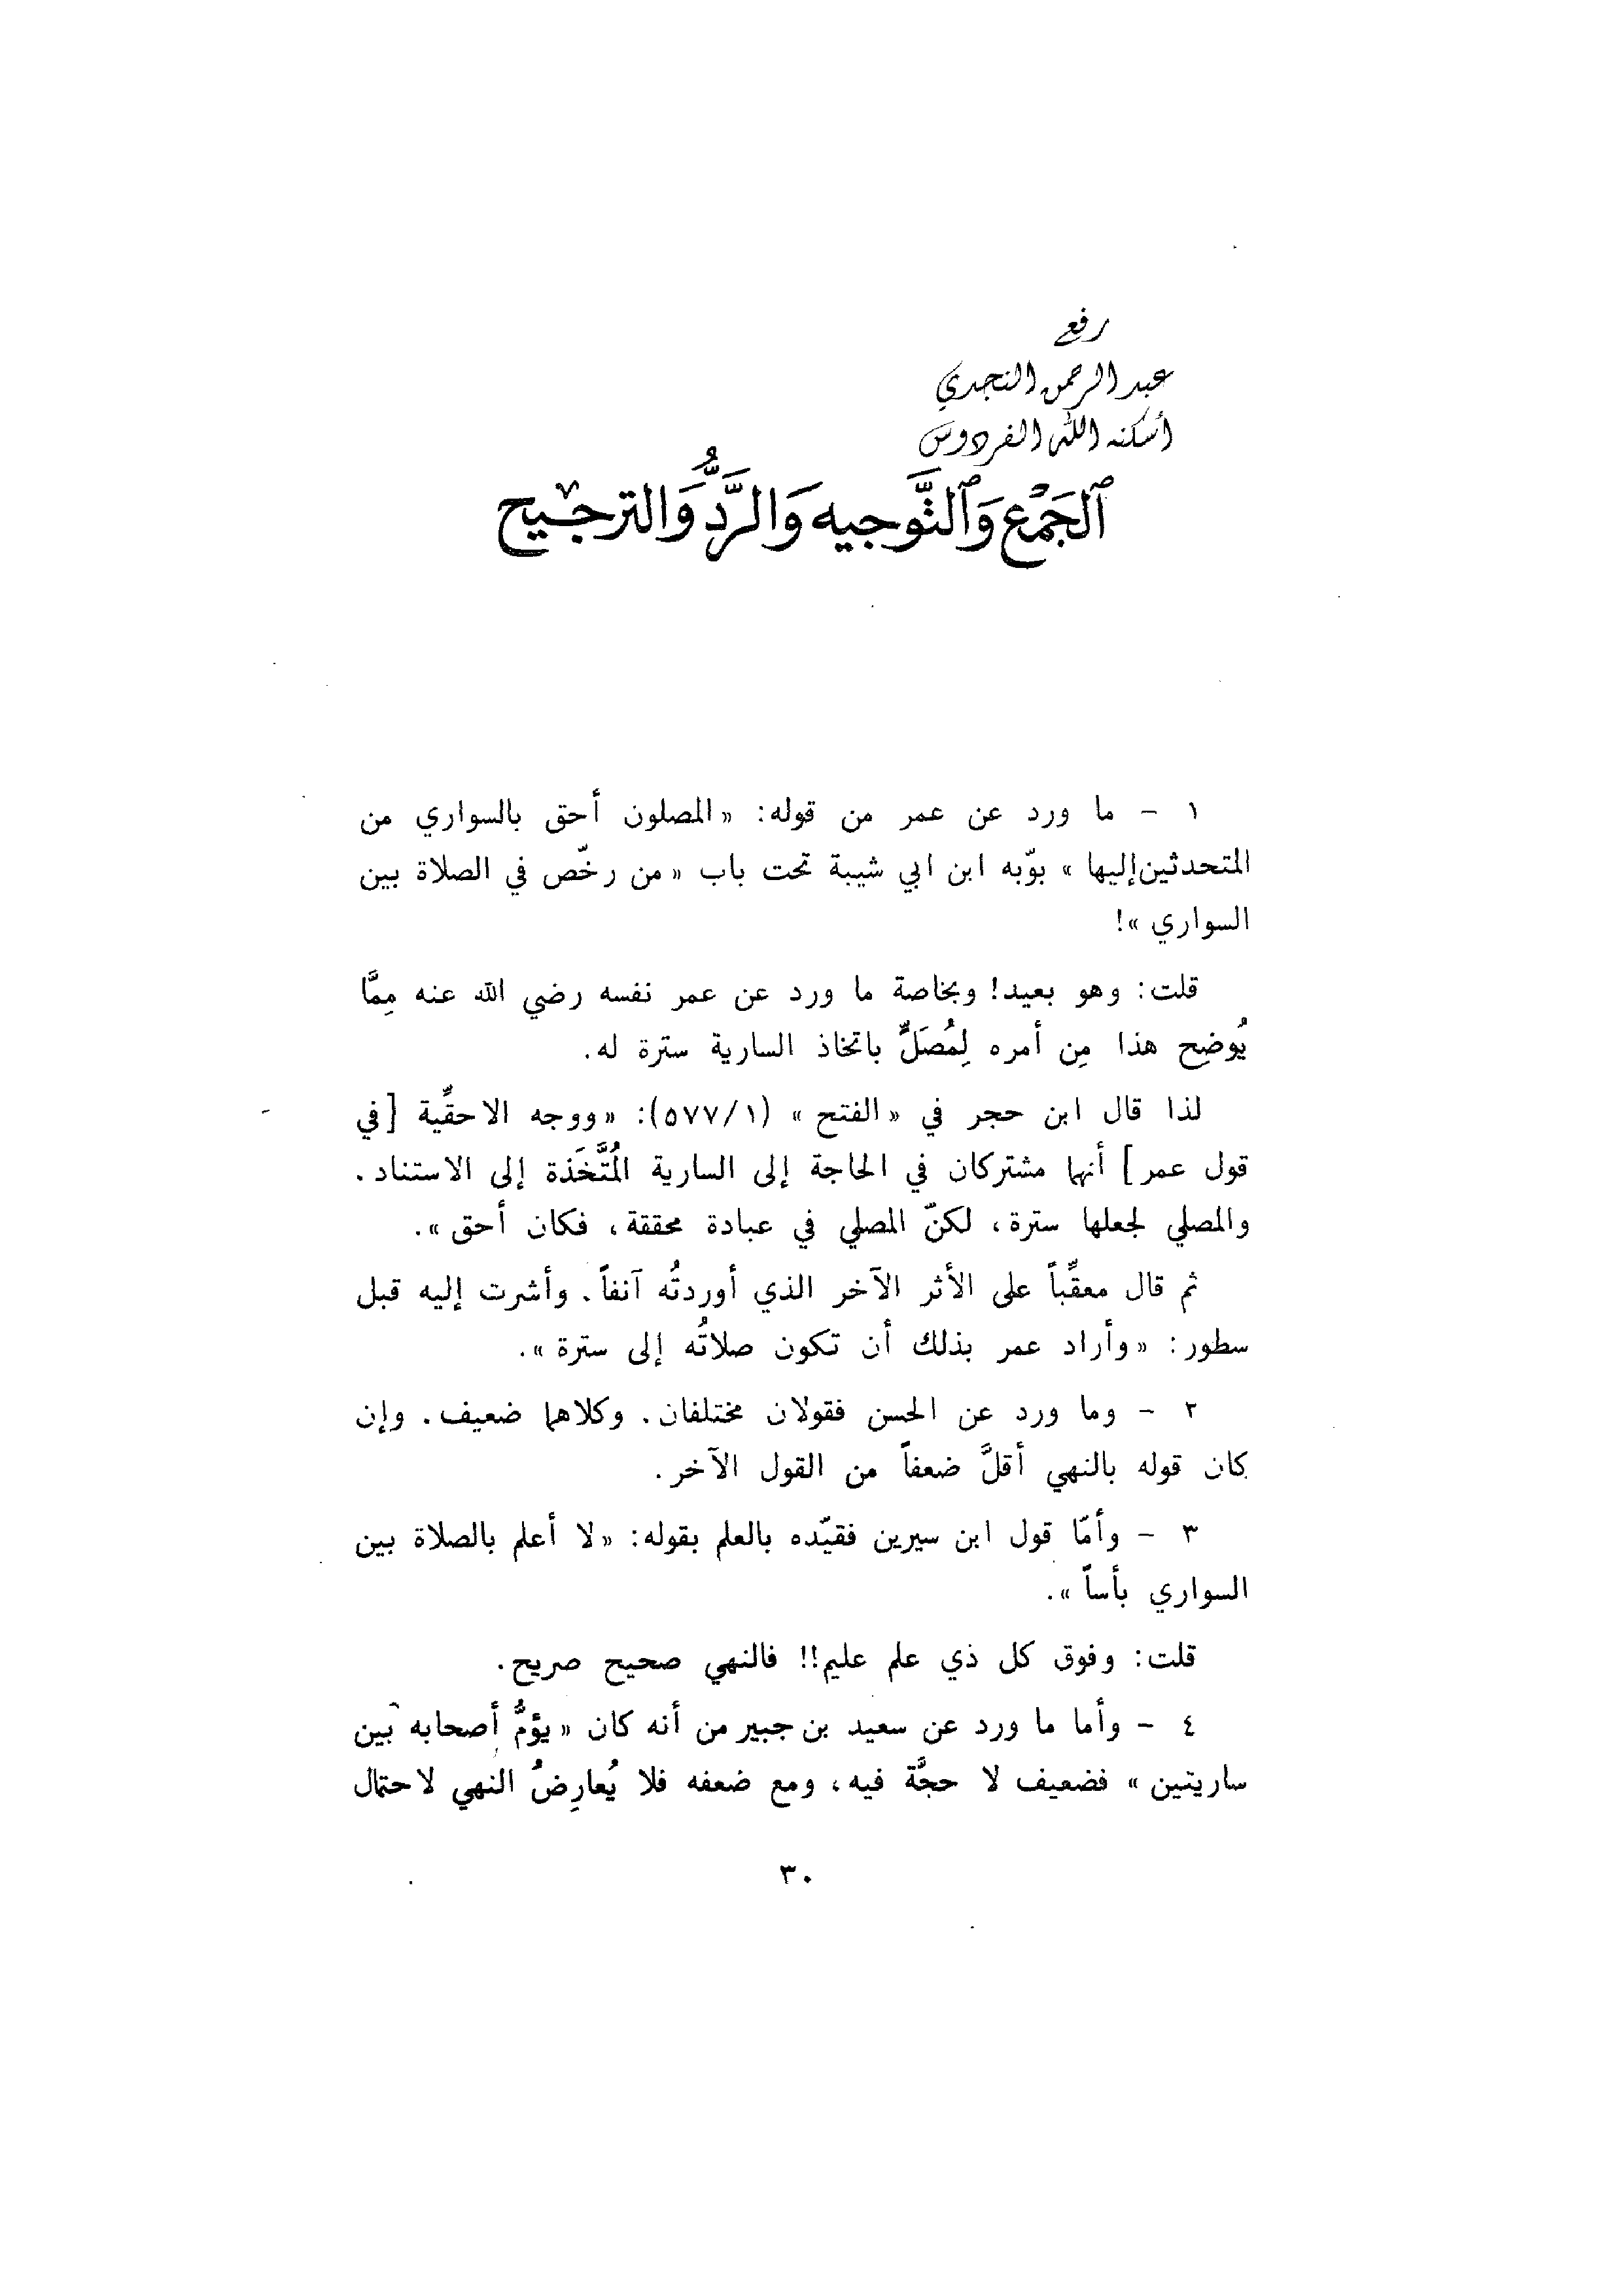 رفع
عبد الرحمن النجدي
أسكنه الله الفردوس
ٱلجَمْع وَٱلتَّوجيه وَالرَّدُّ وَالترجيح
١ - ما ورد عن عمر من قوله: «المصلون أحق بالسواري من
المتحدثين إليها» بوّبه ابن ابي شيبة تحت باب «من رخّص في الصلاة بين
السواري»!
قلت: وهو بعيد! وبخاصة ما ورد عن عمر نفسه رضي الله عنه مِمَّا
يُوضِح هذا مِن أمره لِمُصَلٍّ باتخاذ السارية سترة له.
لذا قال ابن حجر في «الفتح» (٥٧٧/١): «ووجه الاحقِّية [في
قول عمر] أنهما مشتركان في الحاجة إلى السارية المُتَّخَذة إلى الاستناد.
والمصلي لجعلها سترة، لكنّ المصلي في عبادة محققة، فكان أحق».
ثم قال معقِّباً على الأثر الآخر الذي أوردتُه آنفاً. وأشرت إليه قبل
سطور: «وأراد عمر بذلك أن تكون صلاتُه إلى سترة».
٢ - وما ورد عن الحسن فقولان مختلفان. وكلاهما ضعيف. وإن
كان قوله بالنهي أقلَّ ضعفاً من القول الآخر.
٣ - وأمّا قول ابن سيرين فقيّده بالعلم بقوله: «لا أعلم بالصلاة بين
السواري بأساً».
قلت: وفوق كل ذي علم عليم!! فالنهي صحيح صريح.
٤ - وأما ما ورد عن سعيد بن جبير من أنه كان «يؤمُّ أصحابه بين
ساريتين» فضعيف لا حجَّة فيه، ومع ضعفه فلا يُعارِضُ النهي لاحتمال
٣٠